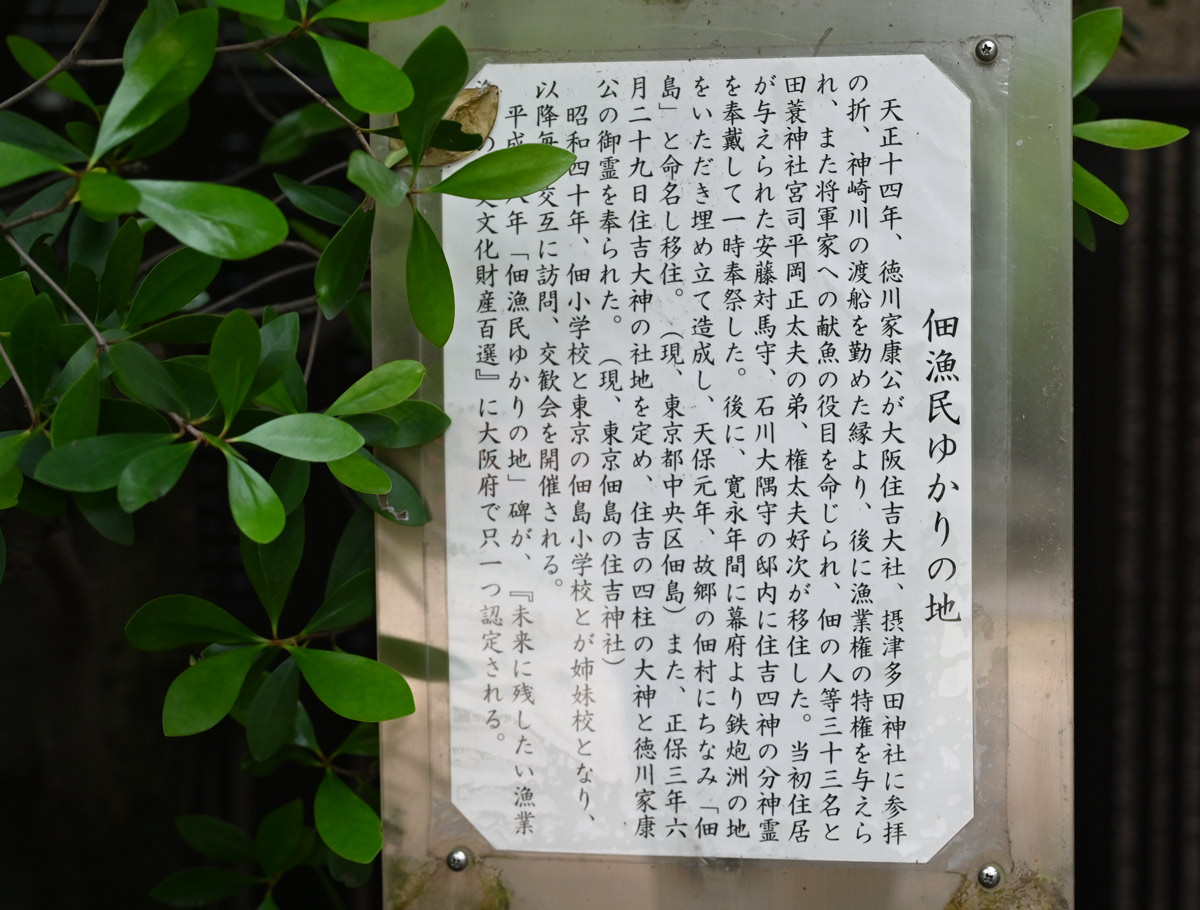 佃漁民ゆかりの地
天正十四年、徳川家康公が大阪住吉大社、摂津多田神社に参拝
の折、神崎川の渡船を勤めた縁より、後に漁業権の特権を与えら
れ、また将軍家への献魚の役目を命じられ、佃の人等三十三名と
田蓑神社宮司平岡正太夫の弟、権太夫好次が移住した。当初住居
が与えられた安藤対馬守、石川大隅守の邸内に住吉四神の分神霊
を奉戴して一時奉祭した。後に、寛永年間に幕府より鉄炮洲の地
をいただき埋め立て造成し、天保元年、故郷の佃村にちなみ「佃
島」と命名し移住。（現、東京都中央区佃島）また、正保三年六
月二十九日住吉大神の社地を定め、住吉の四柱の大神と徳川家康
公の御霊を奉られた。（現、東京佃島の住吉神社）
昭和四十年、佃小学校と東京の佃島小学校とが姉妹校となり、
以降毎 交互に訪問、交歓会を開催される。
平成 八年「佃漁民ゆかりの地」碑が、『未来に残したい漁業
の 文化財産百選』に大阪府で只一つ認定される。